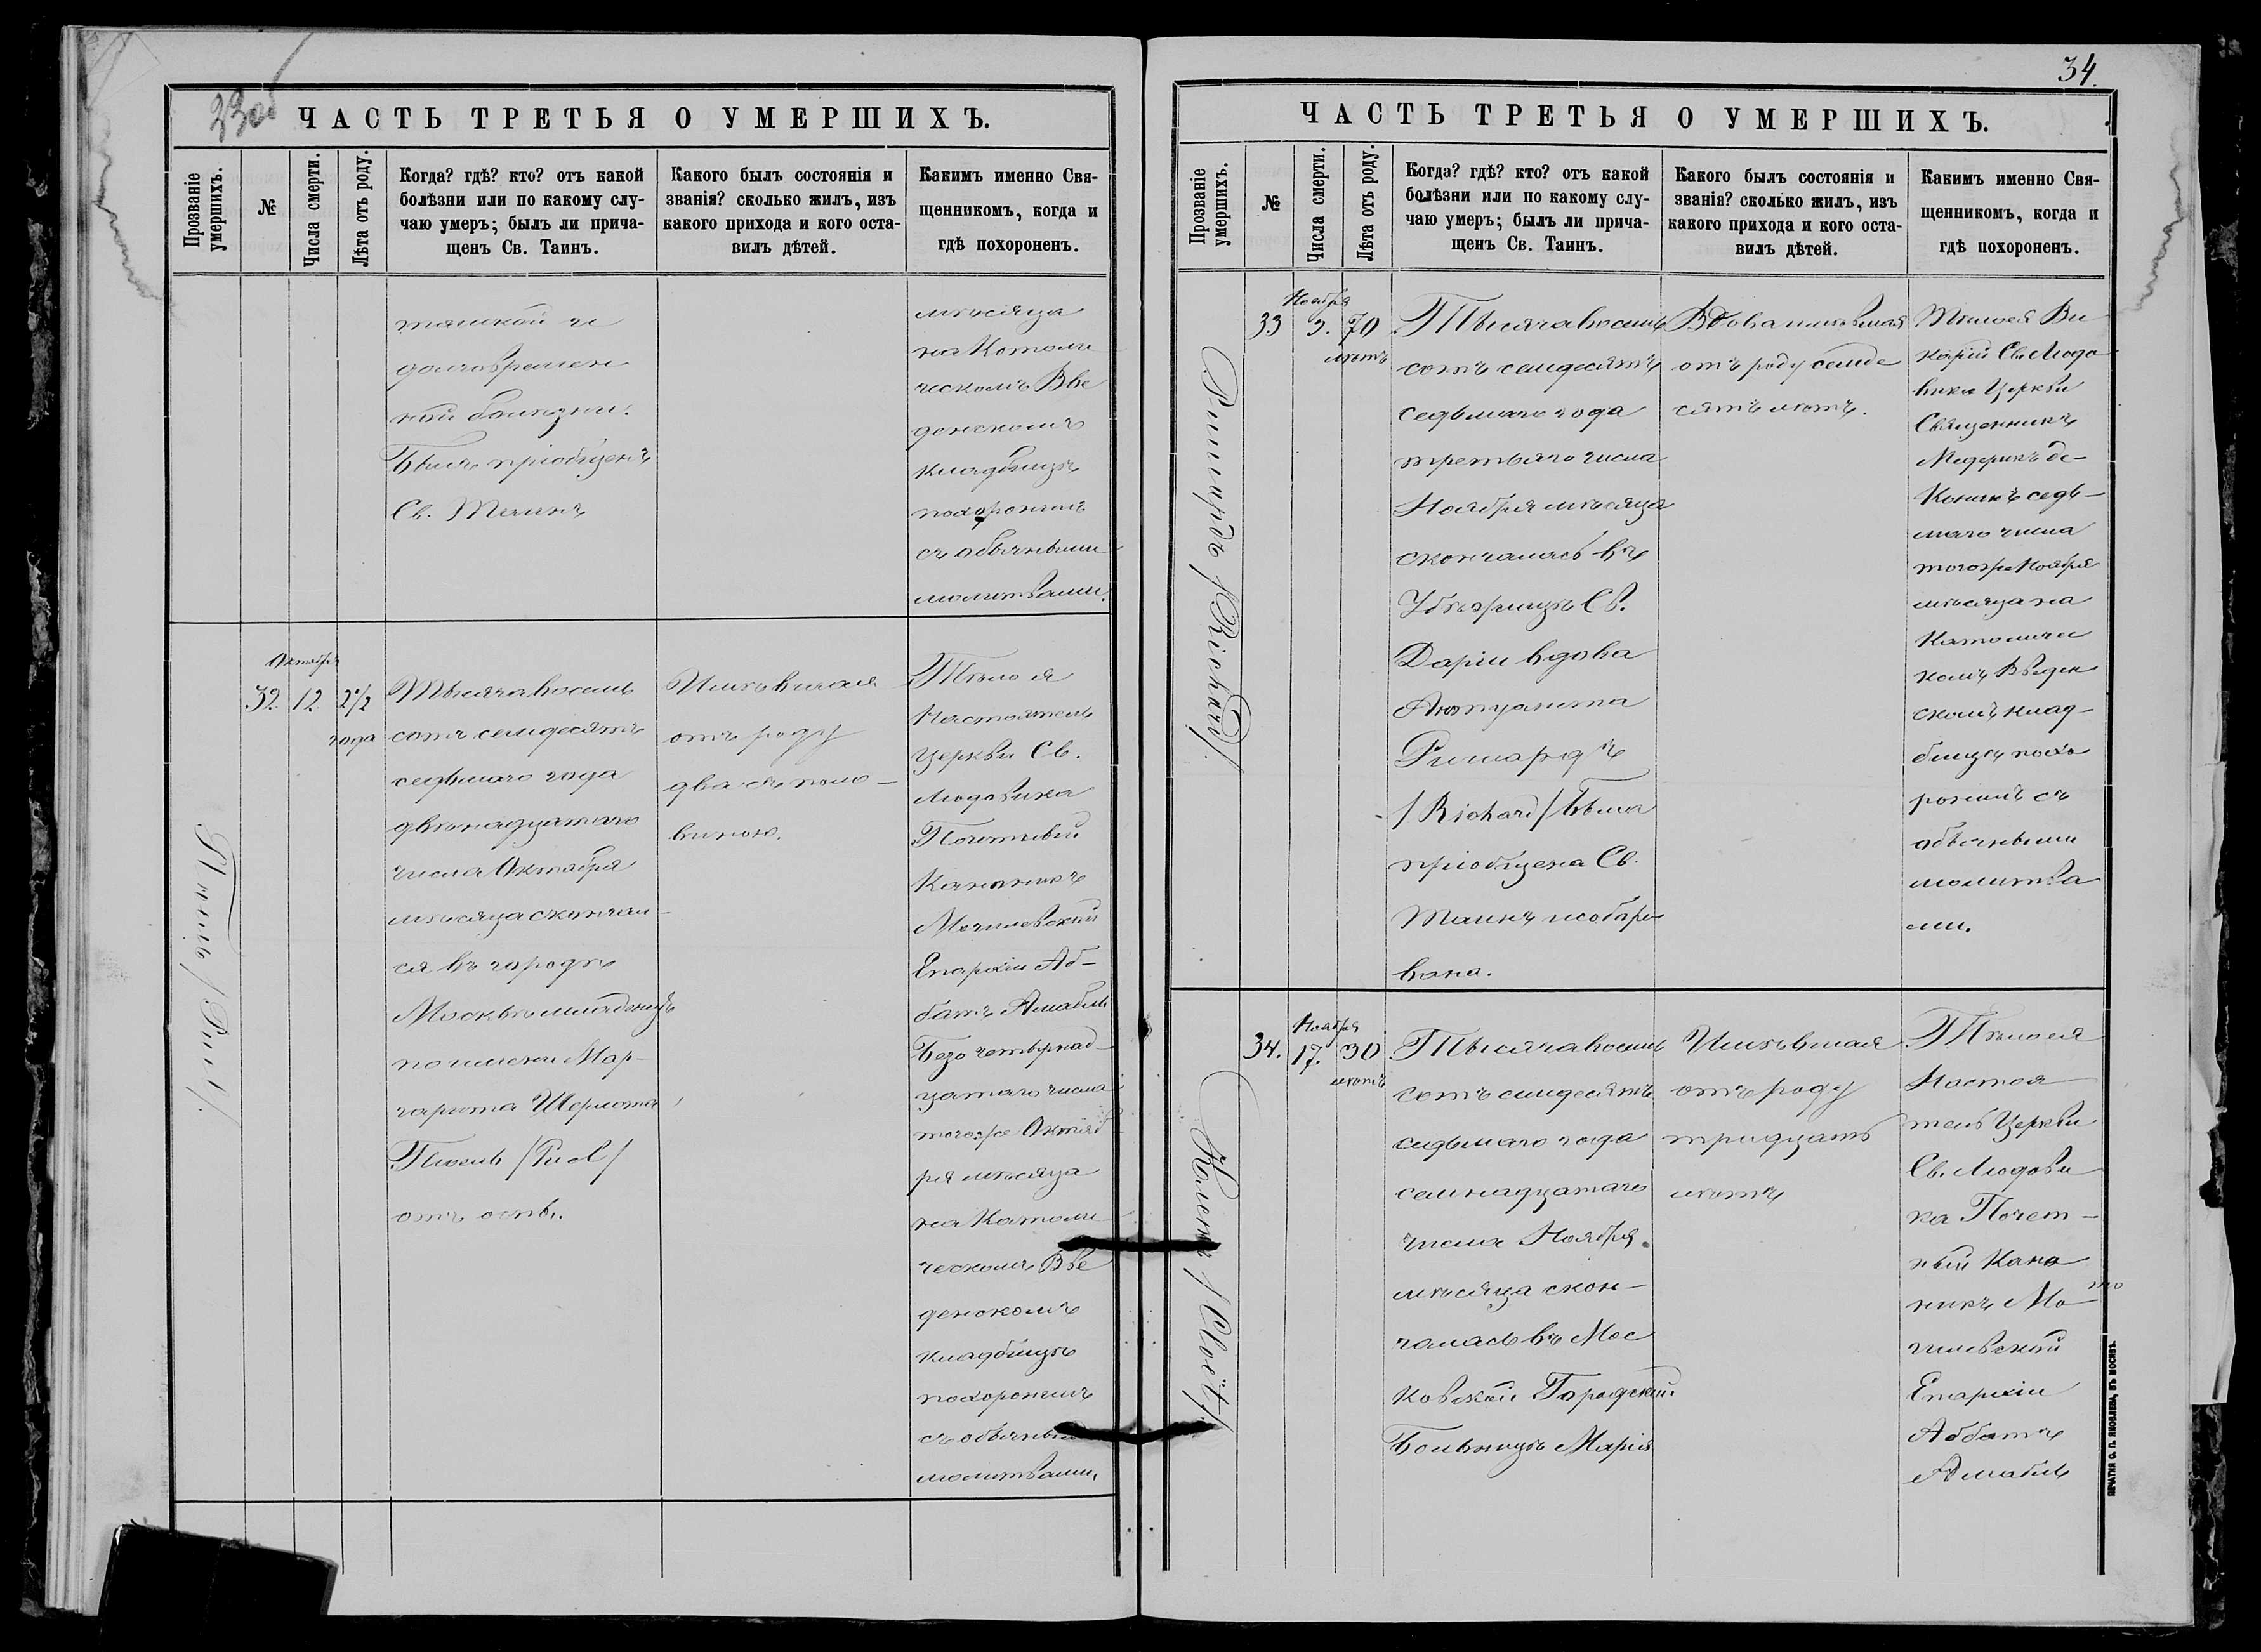 33об
ЧАСТЬ ТРЕТЬЯ О УМЕРШИХЪ.
Прозваніе умершихъ.
№
Числа смерти.
Лѣта отъ роду.
Когда? гдѣ? кто? отъ какой
болѣзни или по какому слу-
чаю умеръ; былъ ли прича-
щенъ Св. Таинъ.
Какого былъ состоянія и
званія? сколько жилъ, изъ
какого прихода и кого оста-
вилъ дѣтей.
Какимъ именно Свя-
щенникомъ, когда и
гдѣ похороненъ.
тяжкой и
долговремен
ной болѣзни.
Былъ пріобщенъ
Св. Таинъ
мѣсяца
на Католи
ческомъ Вве
денскомъ
кладбищѣ
похоронилъ
съ обычными
молитвами.
Піель /Piel/
Октября
32. 12. 2 1/2
года
Тысяча восемь
сотъ семдесятъ
седьмаго года
двѣнадцатаго
числа Октября
мѣсяца скончал
ся въ городѣ
Москвѣ младенецъ
по имени Мар-
гарита Шерлота
Піель /Piel/
отъ оспы.
Имѣвшая
отъ роду
два съ поло-
виною.
Тѣло ея
Настоятель
церкви Св.
Людовика
Почетный
Каноникъ
Могилевской
Епархіи Аб-
батъ Амабль
четырнад-
цатаго числа
тогоже Октяб
ря мѣсяца
на Католи
ческомъ Вве
денскомъ
кладбищѣ
похоронилъ
съ обычными
молитвами.
34.
ЧАСТЬ ТРЕТЬЯ О УМЕРШИХЪ.
Прозваніе умершихъ.
№
Числа смерти.
Лѣта отъ роду.
Когда? гдѣ? кто? отъ какой
болѣзни или по какому слу-
чаю умеръ; былъ ли прича-
щенъ Св. Таинъ.
Какого былъ состоянія и
званія? сколько жилъ, изъ
какого прихода и кого оста-
вилъ дѣтей.
Какимъ именно Свя-
щенникомъ, когда и
гдѣ похороненъ.
Ришардъ /Richard/.
Ноября
33 3. 70
лѣтъ
Тысяча восемь
сотъ семдесятъ
седьмаго года
третьяго числа
Ноября мѣсяца
скончалась въ
Убѣжищѣ Св.
Даріи вдова
Ришардъ
/Richard/ была
пріобщена Св.
Таинъ и собаро
вана.
Вдова имѣвшая
отъ роду семде
сятъ лѣтъ.
Тѣло ея Ви
карій Св. Людо
вика Церкви
Священникъ
Медерикъ де-
седь-
маго числа
тогоже Ноября
мѣсяца на
Католичес
комъ Введен
скомъ клад-
бищѣ похо
ронилъ съ
обычными
молитва
ми.
/Cloët/.
Ноября
34. 17. 30
лѣтъ
Тысяча восемь
сотъ семдесятъ
седьмаго года
семнадцатаго
числа Ноября
мѣсяца скон-
чалась въ Мос
ковской Городской
Больницѣ Марія
Имѣвшая
отъ роду
тридцать
лѣтъ
Тѣло ея
Настоя
тель Церкви
Св. Людови
ка Почет-
ный Кано
никъ Мо-
гилевской
Епархіи
Аббатъ
Амабль
ПЕЧАТНЯ С. П. ЯКОВЛЕВА, ВЪ МОСКВѢ.